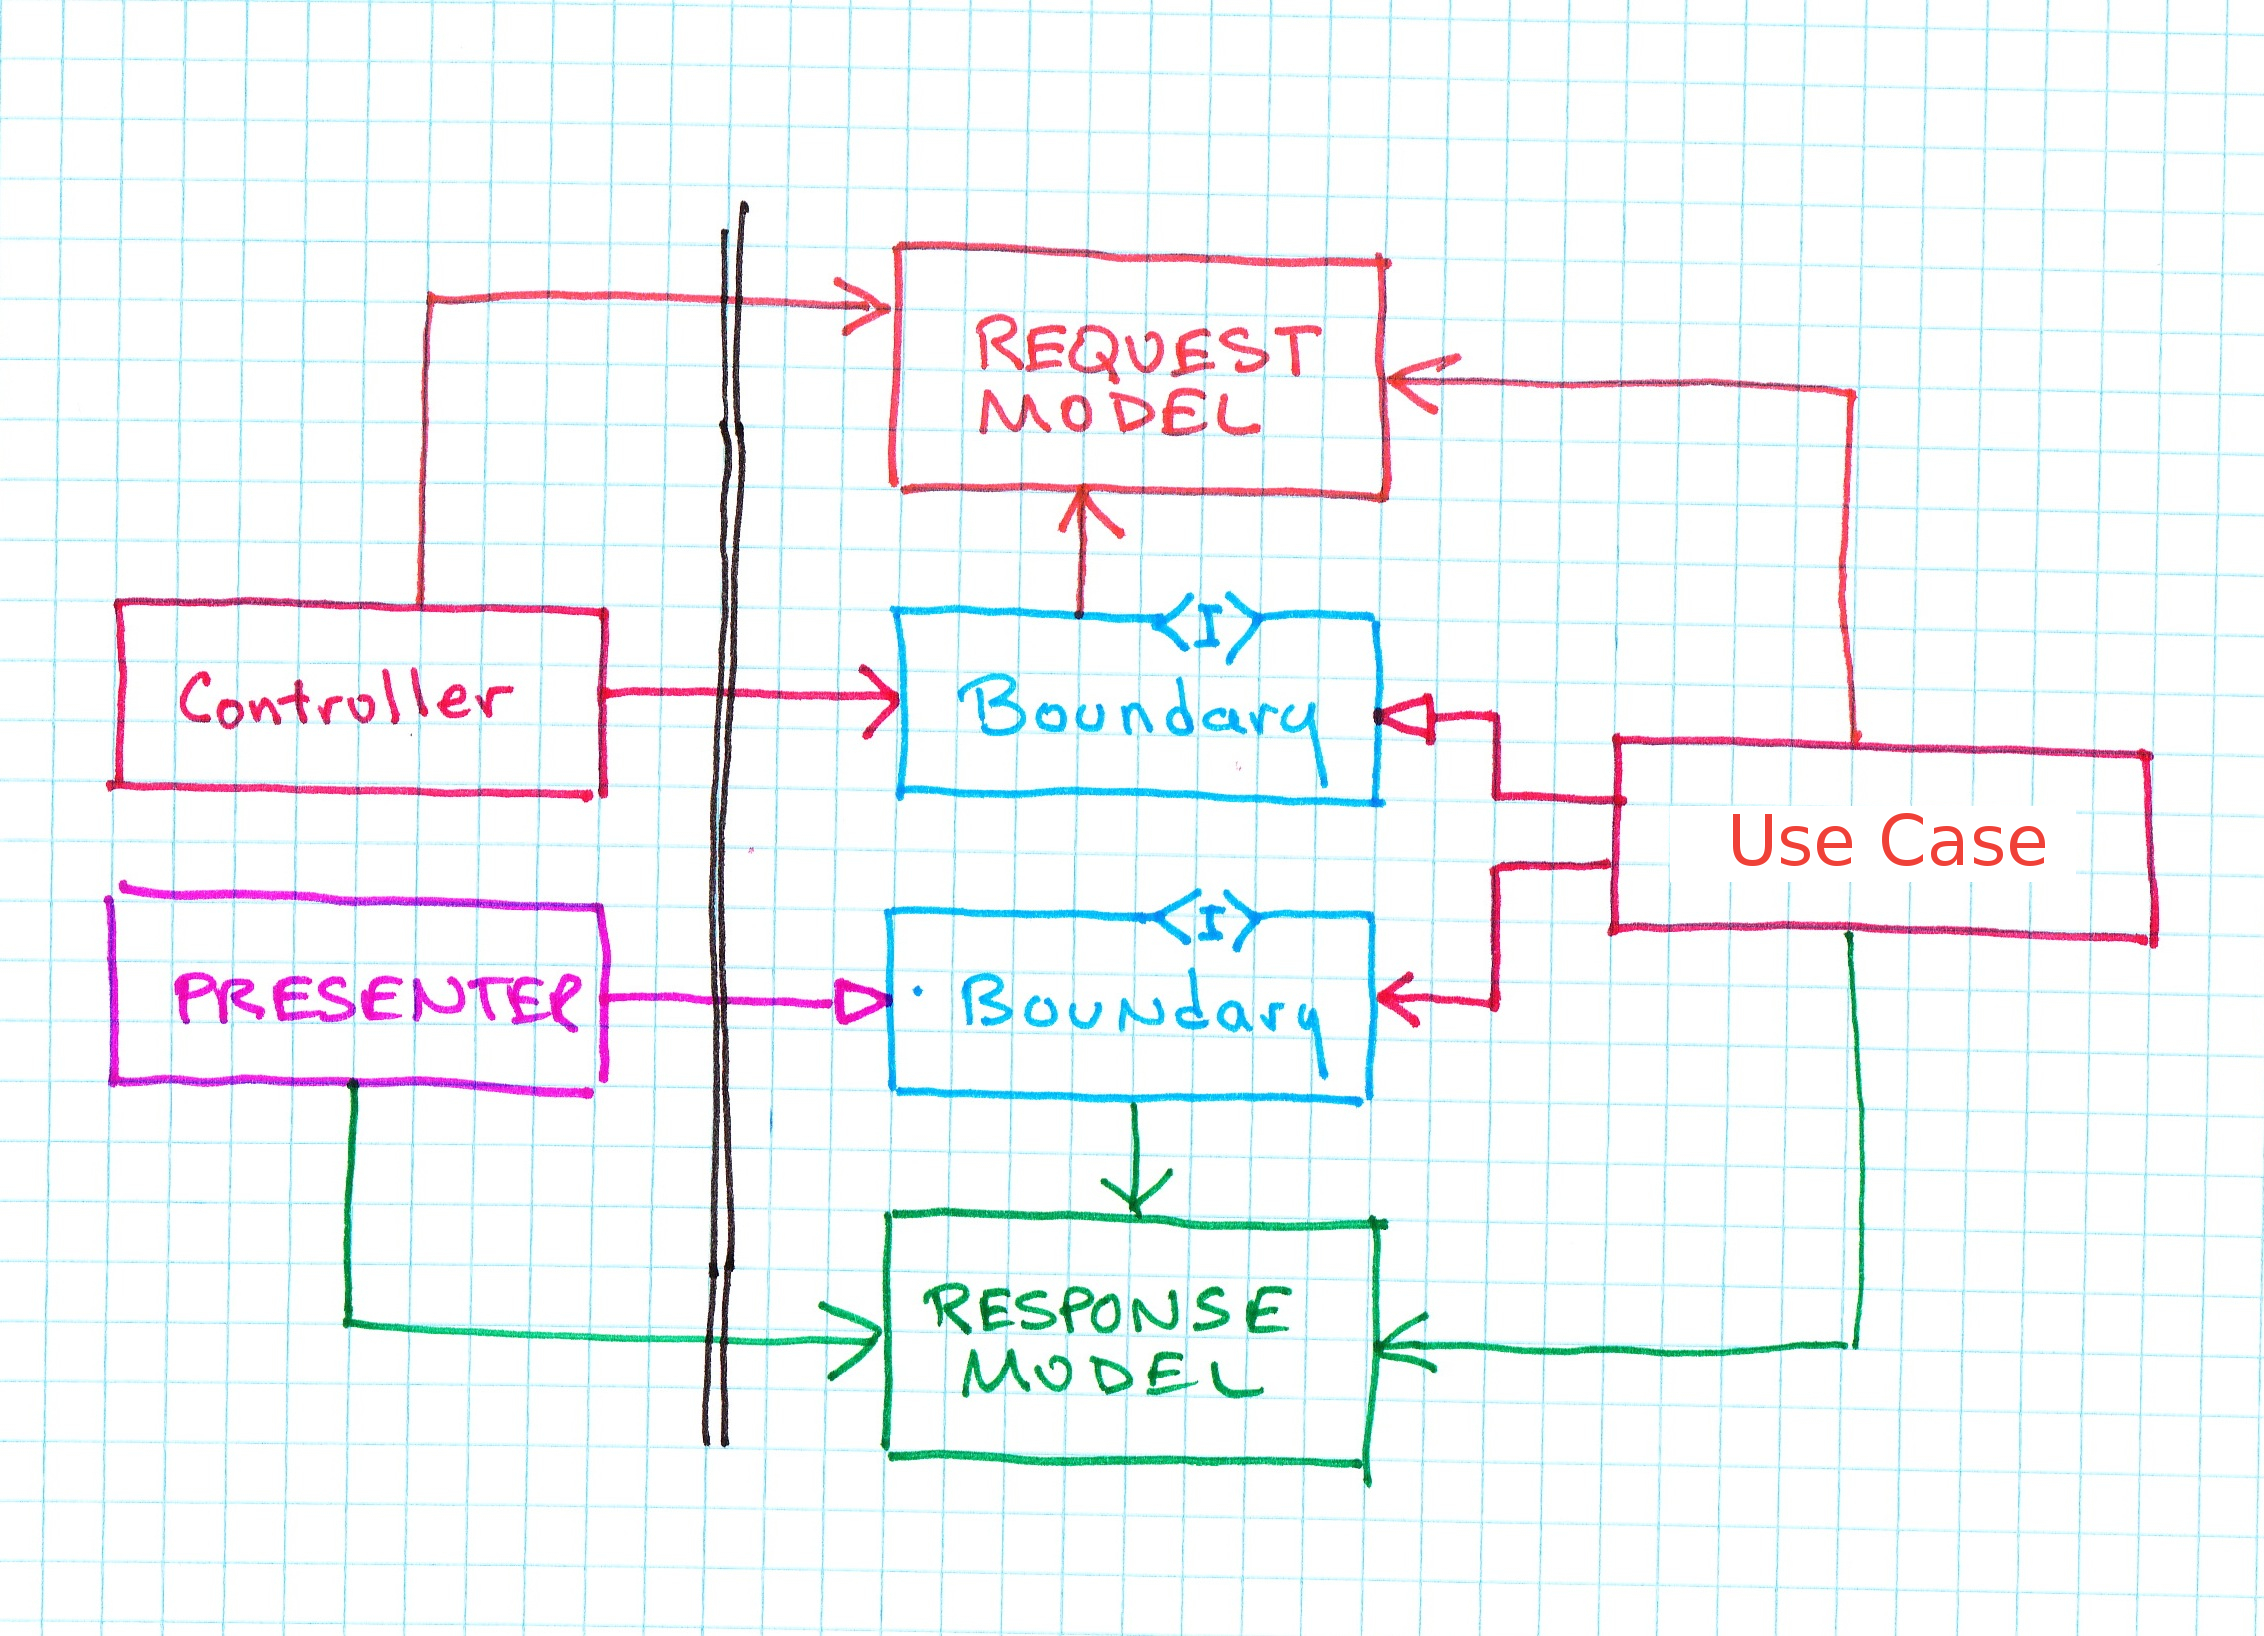 REQUEST
MODEL
<I>
Controller
Boundary
Use Case
<I>
PRESENTER
BOUNDary
RESPONSE
MODEL